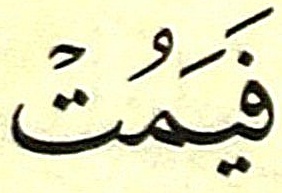 فَيَمُتْ